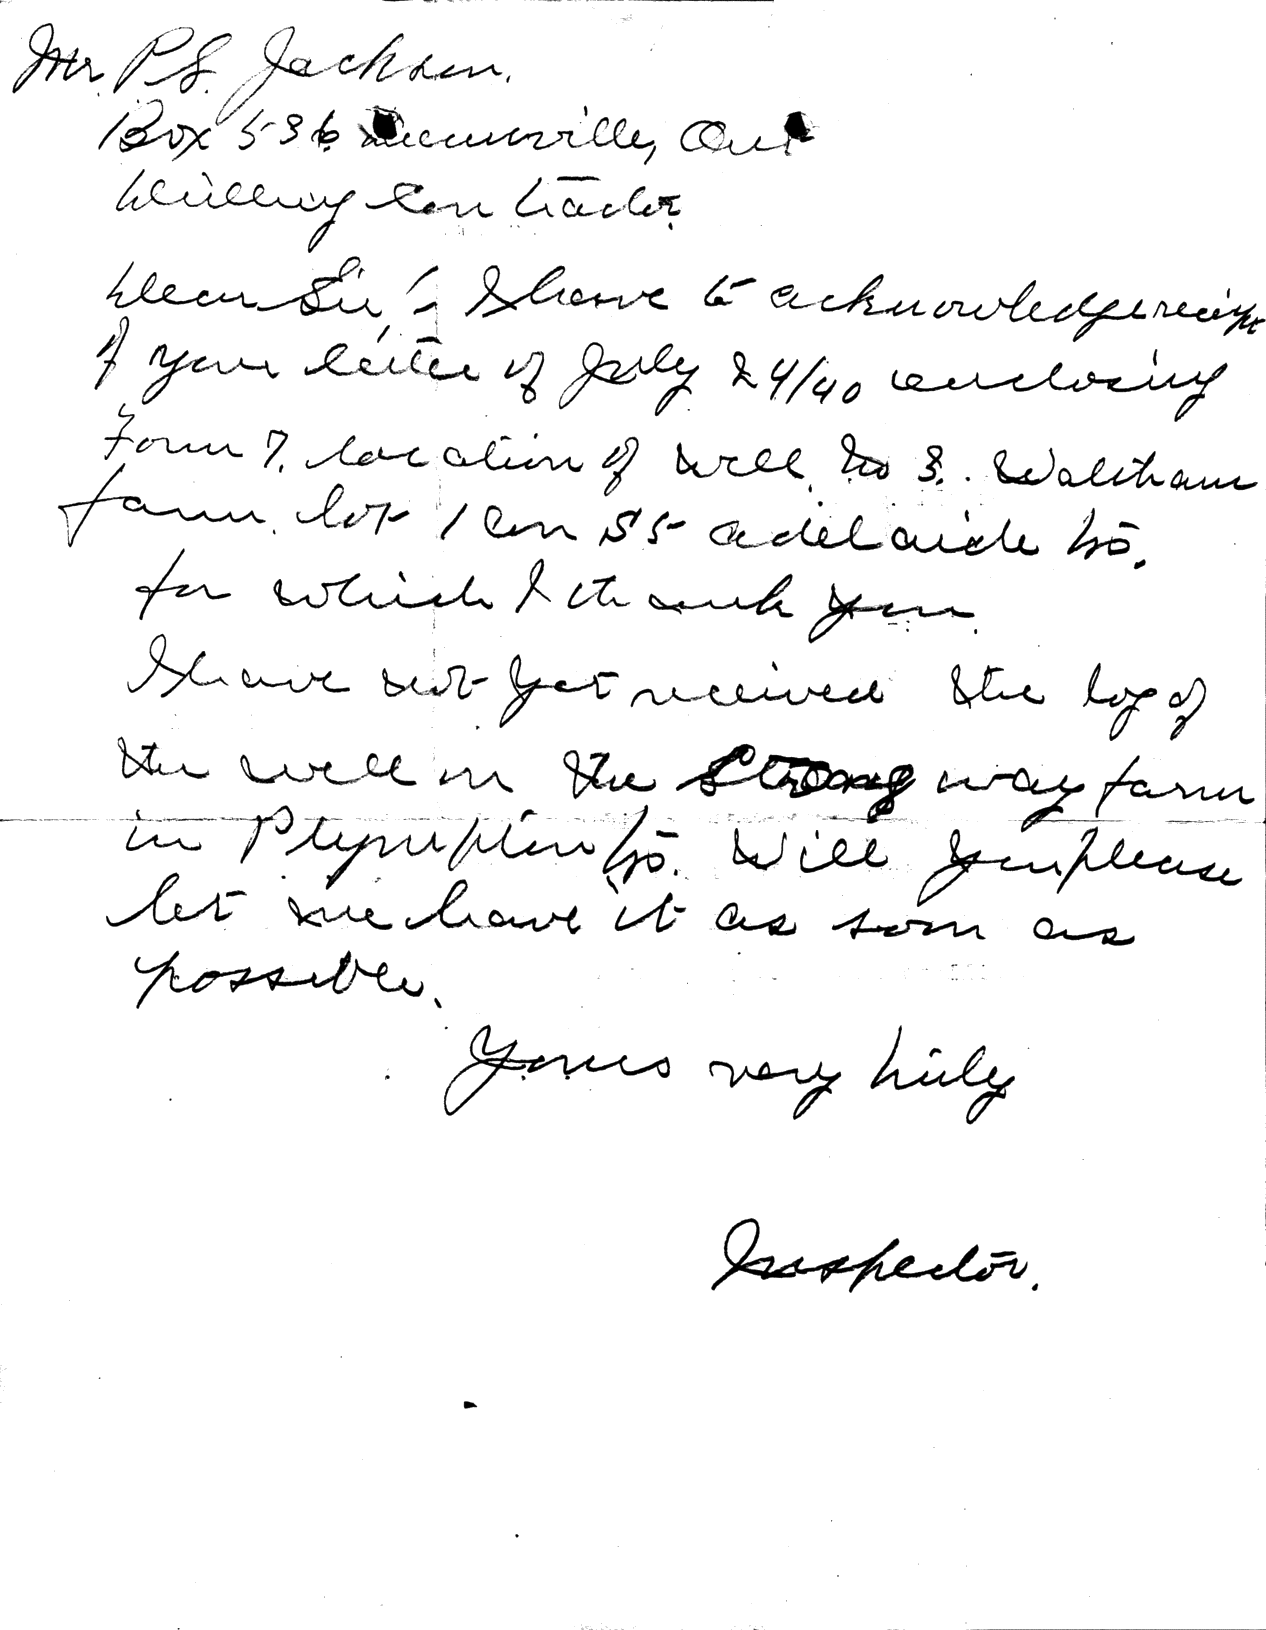 Mr. P.S. Jackson.
Box 536 Dunnville, Ont
Drilling Contractor.
Dear Sir:- I have to acknowledge receipt
of your letter of July 24/40 enclosing
Form 7. location of well No 3. Waltham
farm. lot 1 Con S5 Adelaide Tp.
for which I thank you.
I have not yet received the log of
the well on the Strongway farm
in Plympton Tp. Will you please
let me have it as soon as
possible.
Yours very truly
Inspector.